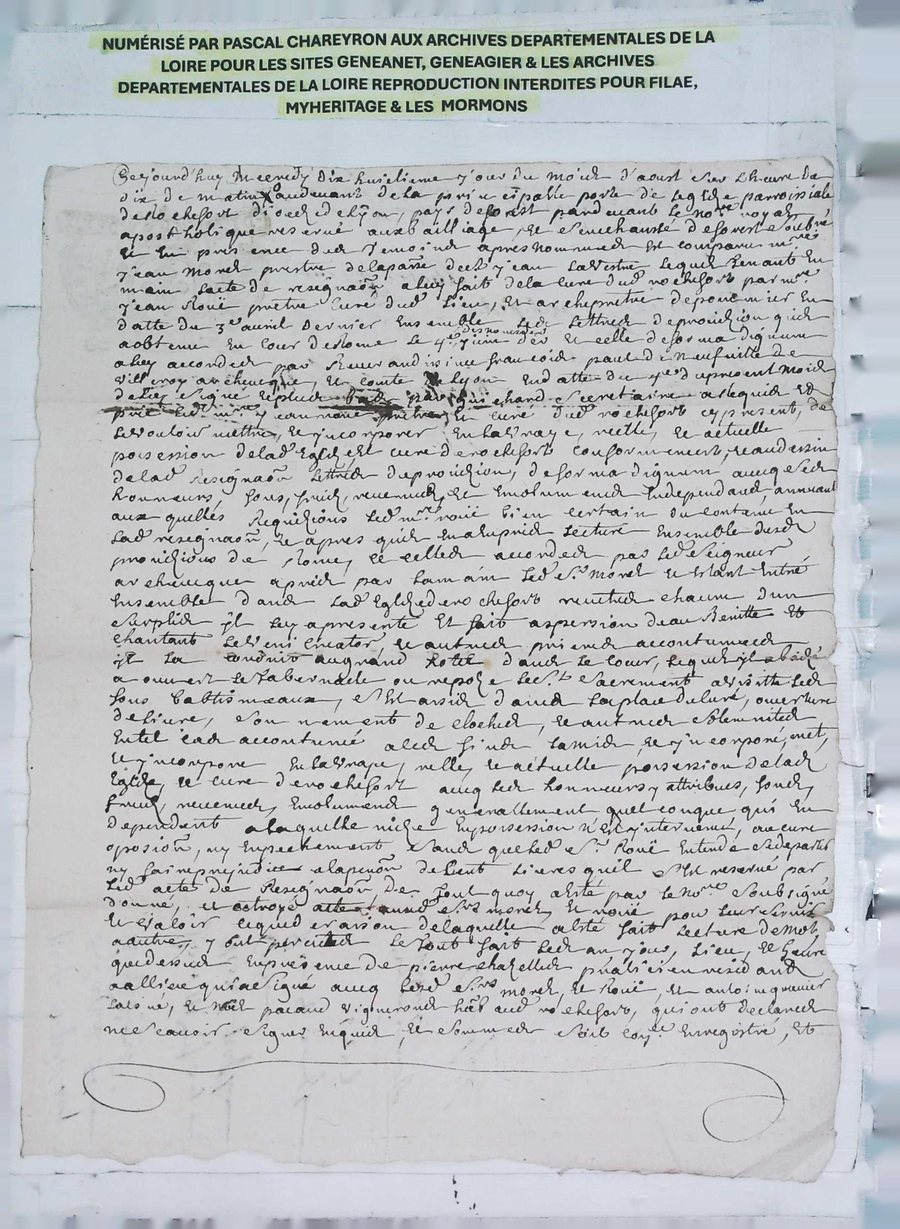 NUMÉRISÉ PAR PASCAL CHAREYRON AUX ARCHIVES DEPARTEMENTALES DE LA
LOIRE POUR LES SITES GENEANET, GENEAGIER & LES ARCHIVES
DEPARTEMENTALES DE LA LOIRE REPRODUCTION INTERDITES POUR FILAE,
MYHERITAGE & LES MORMONS
Cejourd'huy Mecredy dix huictieme jour du mois d'aoust sur l'heure de
dix de matin audevant de la principalle porte de leglize parroissiale
de rochefort diocese de lyon, pays de forest pardevant le no.re royal
apostholique reservé aux bailliage, et senechaussé de forest soubné
et en presence des temoins apres nommes est comparu m.re
jean morel prestre de la par.se de st jean la vestre lequel tenant en
main lacte de resignaon a luy fait de la cure dud rochefort par m.re
jean roüé pretre curé dud lieu, et archepretre de pommier en
datte du 3e avril dernier ensemble les lettres de provizion quil
a obtenu en cour de rome le 4e der et celle de forma dignum
a luy accordes par reverandissime francois paul de neufville de
villeroy archeveque, et comte de lyon en datte du du present mois
de luy signé et plus bas par chard secretaire a requis et
prié led m.re jean roue pretre, et curé dud rochefort cy present, de
le vouloir mettre, et jncorporer en la vraye, reelle, et actuelle
possession de lad Eglize et cure de rochefort conformement, et au dessir
de lad resignaon lettres de provizion, de forma dignum avecq ses
honneurs, fons, fruis, revenus, et Emolumens Independans, annuant
aux quelles requizions led m.re roüé bien certain du contenu en
lad resignaon, et apres quil en a heu pris lecture ensemble desd
provizions de rome, et celles accordes par led seigneur
archeveque a pris par la main led s.r morel et estant entré
ensembles dans lad Eglize de rochefort revetus chacun dun
surplis jl luy a presenté et fait aspersion deau benitte et
chantant le veni creator, et autres prieres accoutumees
jl la conduit au grand hotel dans le cour, lequel
a ouvert le tabernacle ou repoze le s.t sacrement a visitté les
fons babtismeaux, s'est assis dans la place du curé, ouverture
de livre, son nement de cloches, et autres solemnites
en tel cas accoutumé a les fins la mis, et jncorporé, met,
et jncorpore en la vraye, reelle, et actuelle possession de lad
Eglize, et cure de rochefort avecq les honneurs, attribues, fons,
fruis, revenus, Emolumens generallement quelconque qui en
dependent a laquelle mize en possession n'est jntervenu, aucune
oposion, ny empechement sans que led s.r Roüé entende se departir
ny faire prejudice a la pention de cent livres quil s'est reservé par
led acte de resignaon de tout quoy a esté par le no.re soubsigné
donné, et octroyé acte auxd s.rs morel, et roüé pour leur servir
et valoir lequel et raison de laquelle a esté fait lecture de mot
a autre, y ont percisté le tout fait les an jour, lieu, et heure
que dessus en presence de pierre chazelles praticien residans
a allieu qui a signé avecq lesd s.rs morel, et roüé, et antoine
et noel vignerons hab aud rochefort, qui ont declares
ne scavoir signer enquis, et sommes soit con.lé Enregistré, et